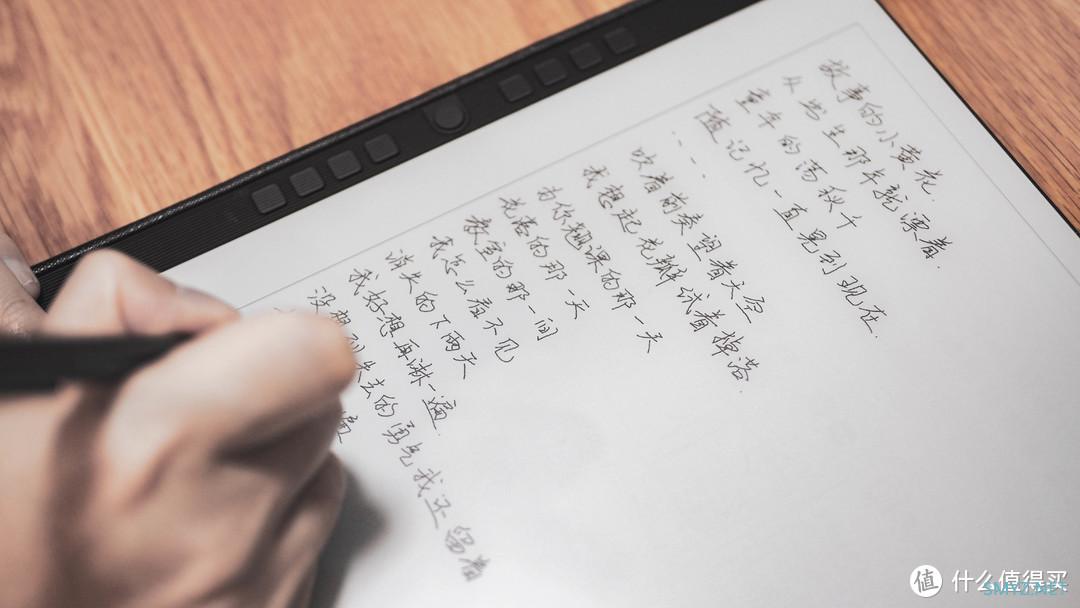 故事的小黄花.
从出生那年就漂着.
童年的荡秋千
随记忆一直晃到现在.
....
吹着前奏望着天空
我想起花瓣试着掉落.
为你翘课的那一天
花落的那一天
教室的那一间
我怎么看不见
消失的下雨天
我好想再淋一遍.
没想到失去的勇气我还留着
遍
值 什么值得买
SMYZ.NET